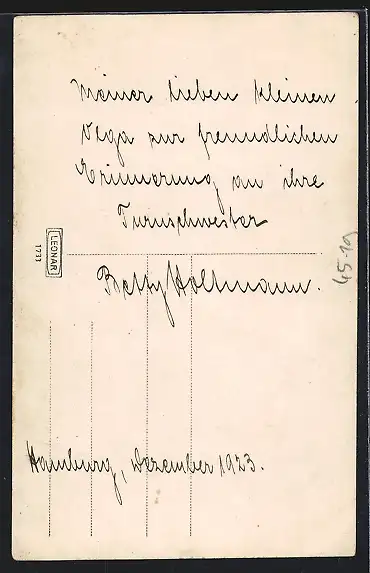 Meiner lieben kleinen
Olga zur freundlichen
Erinnerung an ihre
Turnschwester
Betty Holtmann.
Hamburg, Dezember 1923.
LEONAR
1733
45-19